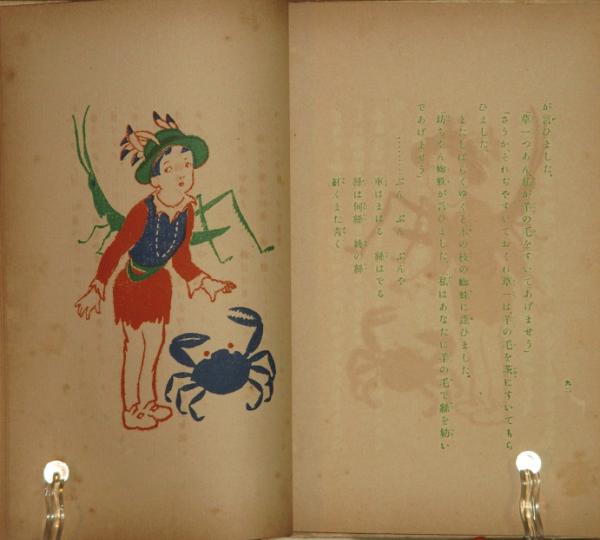 が言ひました。
「草一つあん私が羊の毛をすいてあげませう」
「さうか、それぢやすいておくれ」草一は、羊の毛を茨にすいてもら
ひました。
またしばらくゆくと木の枝の蜘蛛に逢ひました。
「坊ちやん」蜘蛛が言ひました。「私はあなたに羊の毛で絲を紡い
であげませう」
………ぶん ぶん ぶんや
車はまはる 絲はでる
絲は何絲 純の絲
紅くまた青く
九一